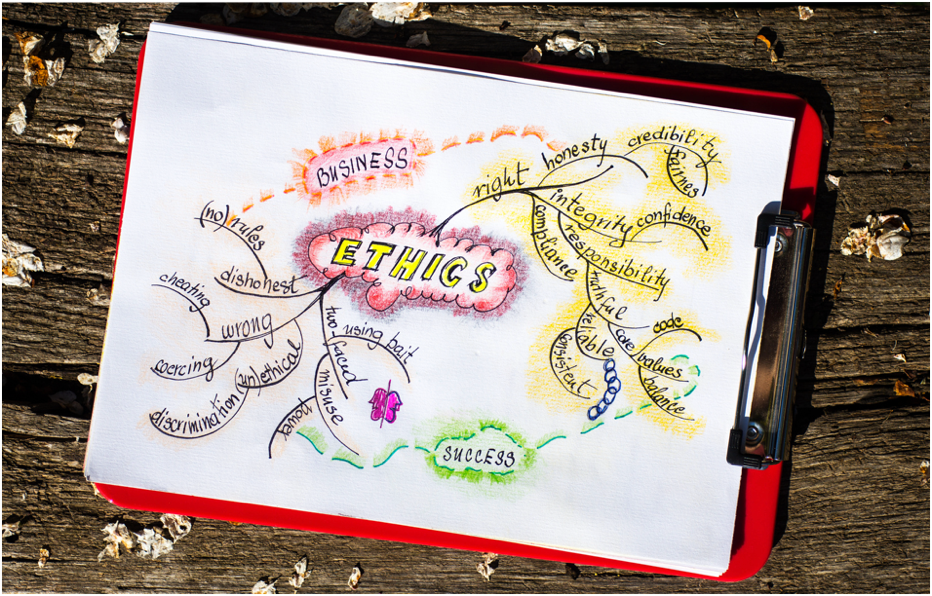 BUSINESS
ETHICS
right
honesty
credibility
fairnes
integrity
confidence
compliance
responsibility
truthful
reliable
consistent
core values
code
balance
(no) rules
dishonest
cheating
wrong
coercing
(un)ethical
discrimination
two-faced
using bait
misuse
power
SUCCESS